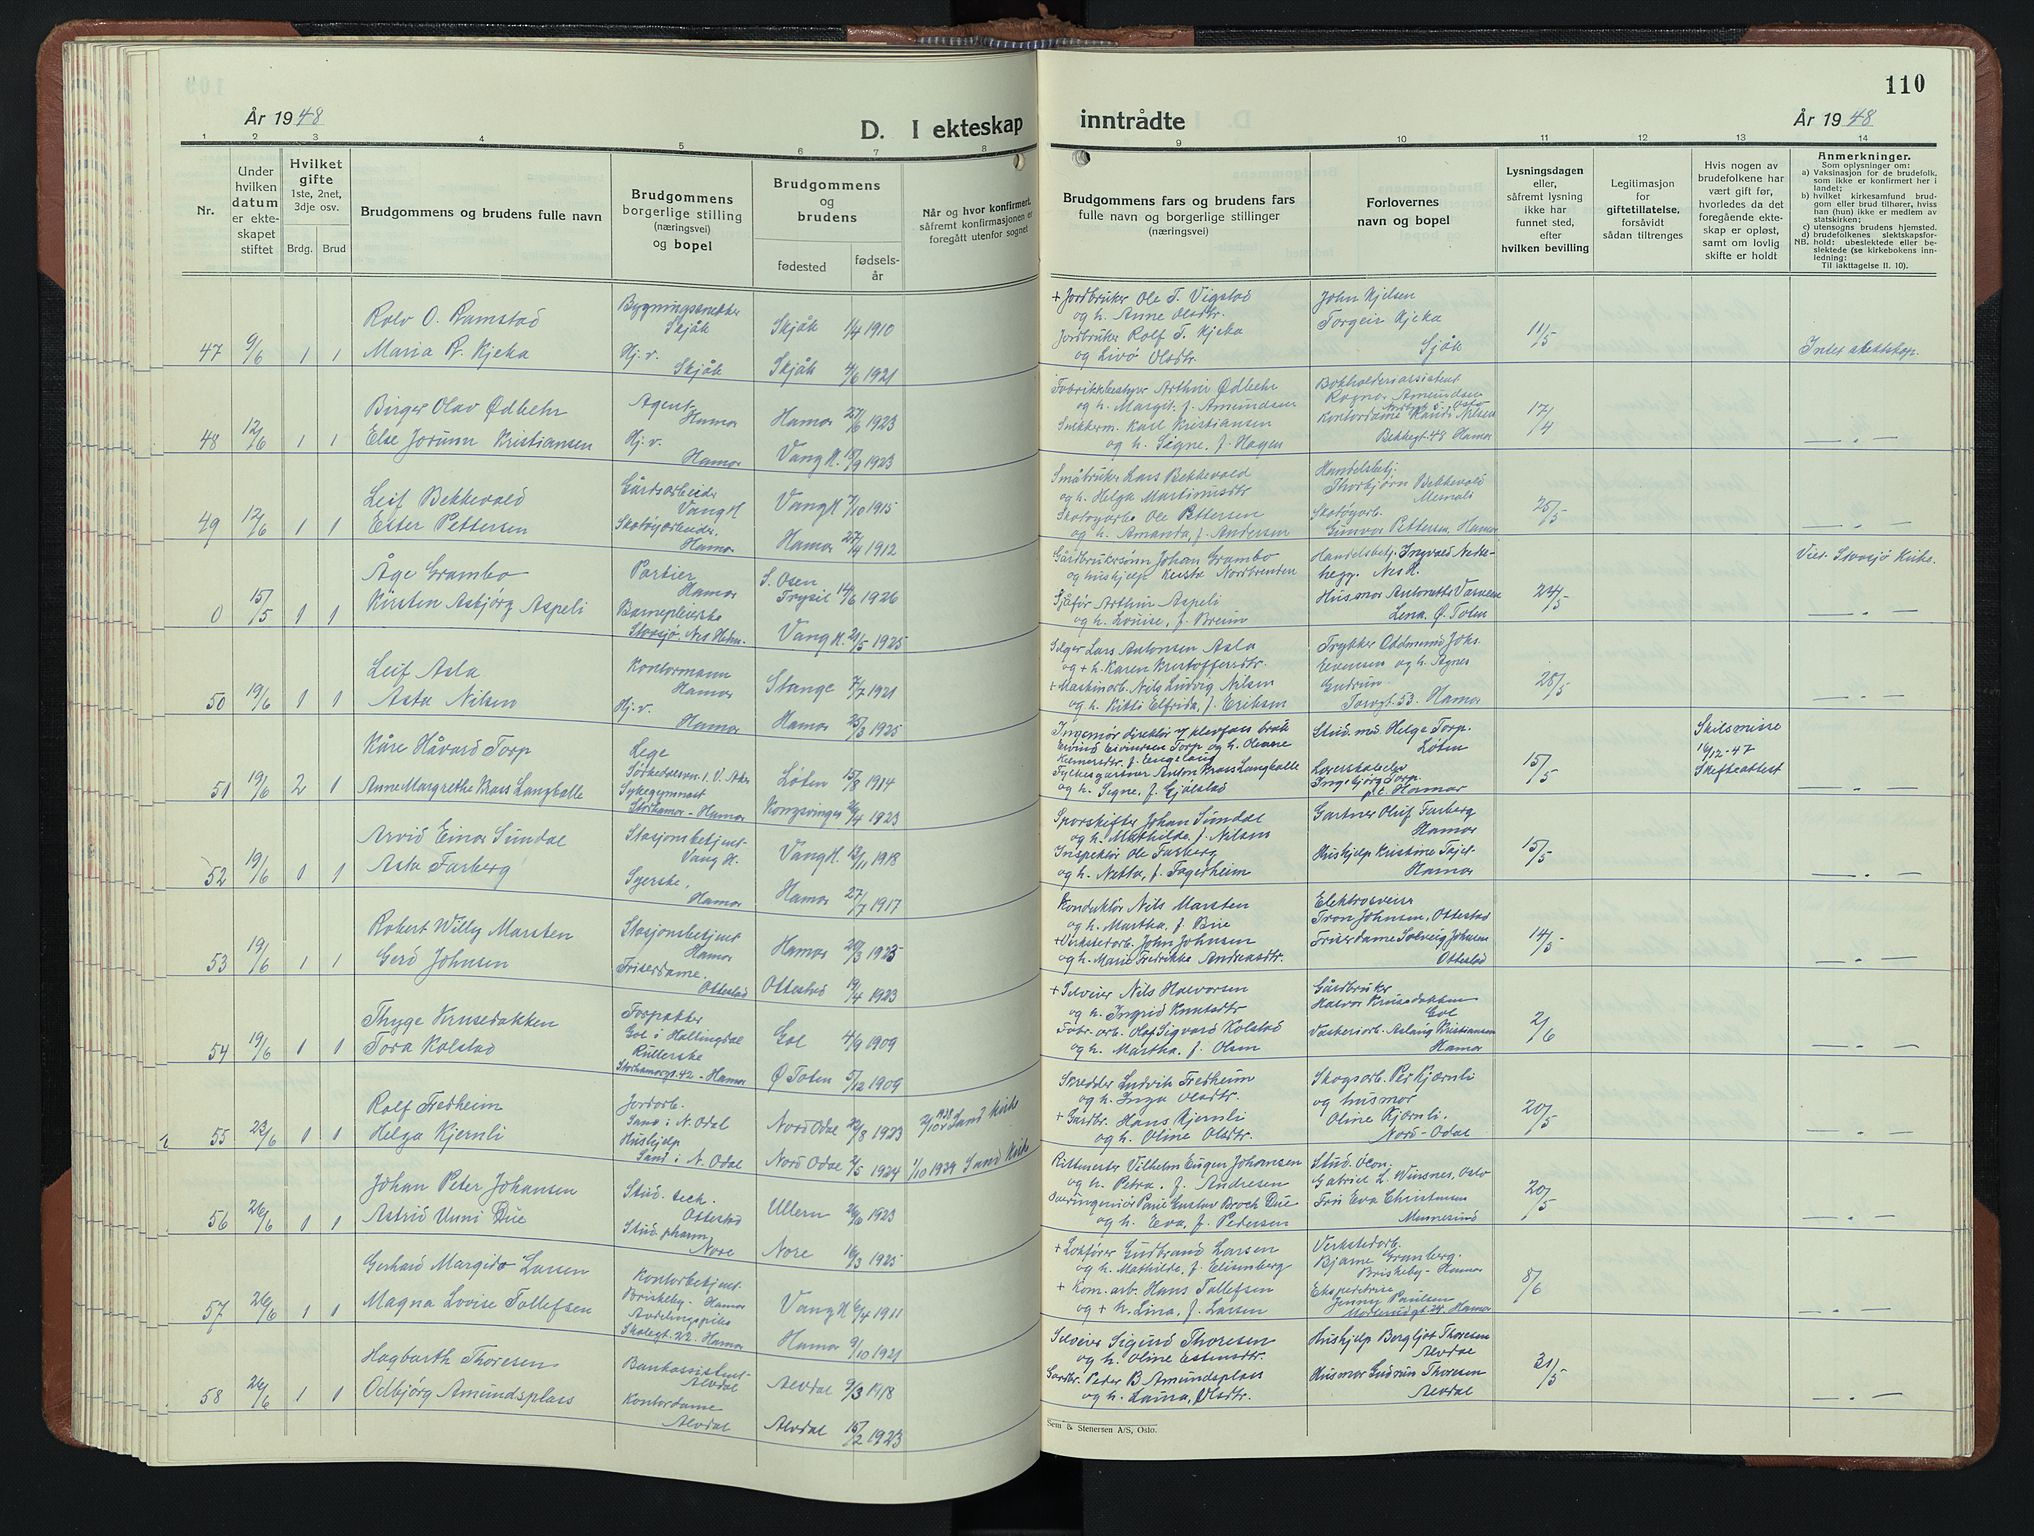 110
År 1948
D. I ekteskap
inntrådte
År 1948
1 2 3 4 5 6 7 8 9 10 11 12 13 14
Nr.
Under hvilken datum er ekteskapet stiftet
Hvilket gifte
1ste, 2net, 3dje osv.
Brdg. Brud
Brudgommens og brudens fulle navn
Brudgommens borgerlige stilling (næringsvei) og bopel
Brudgommens og brudens
fødested
fødselsår
Når og hvor konfirmert, såfremt konfirmasjonen er foregått utenfor sognet
Brudgommens fars og brudens fars fulle navn og borgerlige stillinger (næringsvei)
Forlovernes navn og bopel
Lysningsdagen eller, såfremt lysning ikke har funnet sted, efter hvilken bevilling
Legitimasjon for giftetillatelse, forsåvidt sådan tiltrenges
Hvis nogen av brudefolkene har vært gift før, hvorledes da det foregående ekteskap er opløst, samt om lovlig skifte er holdt
Anmerkninger.
Som oplysninger om:
a) Vaksinasjon for de brudefolk, som ikke er konfirmert her i landet;
b) hvilket kirkesamfund brudgom eller brud tilhører, hviss han (hun) ikke er medlem av statskirken;
c) utensogns brudens hjemsted.
d) brudefolkenes slektskapsforhold: ubeslektede eller beslektede (se kirkebokens innledning:
NB.
Til iakttagelse II. 10).
47 9/6 1 1
Rolv O. Ramstad
Maria R. Kjeka
Bygningssnekker
Skjåk
Hj. v.
Skjåk
Skjåk 1/4 1910
Skjåk 4/6 1921
+ Jordbruker Ole T. Vigstad
og h. Anne Olsdtr.
Jordbruker Rolf T. Kjeka
og Livø Olsdtr.
John Kjelsen
Torgeir Kjeka
Sjåk
11/5
Intet slektskap.
48 12/6 1 1
Birger Olav Ødbehr
Else Jorunn Kristiansen
Agent
Hamar
Hj. v.
Hamar
Hamar 27/6 1923
Vang H. 18/9 1923
Fabrikkbestyrer Arthur Ødbehr
og h. Margit f. Amundsen
Snikkerm. Karl Kristiansen
og h. Signe, f. Hagen
Bokholderiassistent
Ragnar Amundsen
Kontordame Randi Nilsen
Bekkegt. 48 Hamar
17/4
— " —
49 12/6 1 1
Leif Bekkevold
Ester Pettersen
Gårdsarbeider
Vang H
Skotøyarbeider,
Hamar
Vang H 7/10 1915
Hamar 27/4 1912
Småbruker Lars Bekkevold
og h. Helga Martinusdtr
Skotøyarb. Ole Pettersen
og h. Amanda, f. Andersen
Handelsbetj.
Thorbjørn Bekkevold
Mesnali
Skotøyarb.
Gunvor Pettersen, Hamar
25/5
— " —
0 15/5 1 1
Åge Grambo
Kirsten Asbjørg Aspeli
Portier
Hamar
Barnepleierske
Stavsjø, Nes Hedm.
S. Osen
Trysil 14/6 1926
Vang H. 21/5 1925
Gårdbrukersønn Johan Grambo
og hushjelp Kersta Nordbrenden
Sjåfør Arthur Aspeli
og h. Louise, f. Breim
Handelsbetj. Ingvald Nekkehegg. Nes H.
Husmor Antonette Varvene
Lena, Ø. Toten
24/5
Viet Stavsjø Kirke.
— " —
50 19/6 1 1
Leif Asla
Asta Nilsen
Kontormann
Hamar
Hj. v.
Hamar
Stange 7/7 1921
Hamar 25/3 1925
Selger Lars Antonsen Asla
og + h. Karen Kristoffersdtr.
+ Maskinarb. Nils Ludvig Nilsen
og h. Kitti Elfrida, f. Eriksen
Trykker Oddmund Johs.
Evensen og h. Agnes
Gudrun.
Torvgt. 53. Hamar
28/5
— " —
51 19/6 2 1
Kåre Håvard Torp
Anne Margrethe Krass Langballe
Lege
Sørkedalsvn. 1. V. Aker
Sykegymnast
Storhamar - Hamar
Løten 15/8 1914
Kongsvinger 26/4 1923
Eivind Eivindsen Torp og h. Oleane
f. Engelaug
Fylkesgartner Anton Krass Langballe
og h. Signe, f. Gjølstad
Stud. med. Helge Torp.
Løten
Ingebjørg Torp
Hamar
15/5
Skilsmisse
16/12-47
Skifteattest
— " —
52 19/6 1 1
Arvid Einar Sundal
Asta Farberg
Stasjonsbetjent
Vang H.
Syerske,
Hamar
Vang H. 13/11 1918
Hamar 27/7 1917
Sporskifter Johan Sundal
og h. Mathilde, f. Nilsen
Inspektør Ole Farberg
og h. Netta, f. Fagerheim
Gartner Oluf Farberg
Hamar
Hushjelp Kristine Tajet
Hamar
15/5
— " —
53 19/6 1 1
Robert Willy Marsten
Gerd Johnsen
Stasjonsbetjent
Hamar
Friserdame.
Ottestad
Hamar 20/3 1923
Ottestad 19/4 1923
Konduktør Nils Marsten
og h. Martha, f. Brie
+ Verkstedarb. John Johnsen
og h. Marie Fredrikke Andreasdtr.
Elektrosveiser
Tron Johnsen, Ottestad
Friserdame Solveig Johnsen
Ottestad
14/5
— " —
54 19/6 1 1
Thyge Krusedokken
Tora Kolstad
Forpakter
Gol i Hallingdal
Rullerske
Storhamargt. 42 - Hamar
Gol 4/9 1909
Ø Toten 5/12 1909
+ Selveier Nils Halvorsen
og h. Ingrid Knutsdtr
Fabr. arb. Olaf Sigvard Kolstad
og h. Martha, f. Olsen
Gårdbruker
Halvor Krusedokken
Gol
Vaskeriarb. Aslaug Kristiansen
Hamar
2/6
— " —
55 23/6 1 1
Rolf Fredheim
Helga Kjernli
Jordarb.
Sand i N. Odal
Hushjelp
Sand i N. Odal
Nord Odal 22/8 1923
Nord Odal 2/5 1924
2/10 1938 Sand Kirke
1/10 1939 Sand Kirke
Skredder Ludvik Fredheim
og h. Inga Olsdtr.
+ Gardbr. Hans Kjernli
og h. Oline Olsdtr.
Skogsarb. Per Kjærnli
og husmor
Oline Kjærnli.
Nord-Odal
20/5
56 26/6 1 1
Johan Peter Johansen
Astrid Unni Due
Stud. tech.
Ottestad
Stud. pharm.
Nore
Ullern 26/6 1923
Nore 16/3 1925
Rittmester Vilhelm Eugen Johansen
og h. Petra. f. Andresen
Overingeniør Paul Gustav Broch Due
og h. Eva, f. Pedersen
Stud. Øcon.
Gabriel L. Winsnes, Oslo
Fru Eva Christensen
Minnesund
20/5
— " —
57 26/6 1 1
Gerhard Margido Larsen
Magna Lovise Tollefsen
Kontorbetjent
Briskeby - Hamar
Avdelingspike
Skolegt. 22 - Hamar
Vang H 6/4 1911
Hamar 9/10 1921
+ Lokfører Gudbrand Larsen
og h. Mathilde, f. Elisenberg
+ Kom. arb. Hans Tollefsen
og + h. Lina, f. Larsen
Verkstedarb.
Bjarne Granberg.
Briskeby - Hamar
Ekspeditrise
Jenny Paulsen
8/6
— " —
58 26/6 1 1
Hagbarth Thoresen
Odbjørg Amundsplass
Bankassistent
Alvdal
Kontordame
Alvdal
Alvdal 9/3 1918
Alvdal 15/2 1923
Selveier Sigurd Thoresen
og h. Oline Estensdtr.
Gardbr. Peder B Amundsplass
og h. Laura, Olsdtr.
Hushjelp Bergljot Thoresen
Alvdal
Husmor Gudrun Thoresen
Alvdal
31/5
— " —
Sem & Stenersen A/S, Oslo.